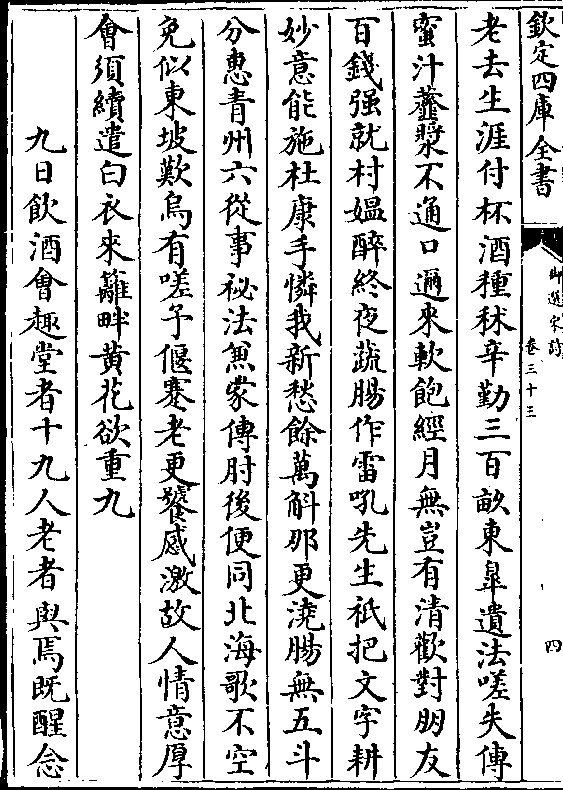 欽定四庫全書
御選宋詩
卷三十三
四
老去生涯付杯酒種秫辛勤三百畝東臯遺法嗟失傳
蜜汁虀漿不通口邇來軟飽經月無豈有清歡對朋友
百錢强就村媼醉終夜蔬腸作雷吼先生祇把文字耕
妙意能施杜康手憐我新愁餘萬斛那更澆腸無五斗
分惠青州六從事祕法兼蒙傳肘後便同北海歌不空
免似東坡歎烏有嗟予偃蹇老更饕感激故人情意厚
會須續遣白衣來籬畔黄花欲重九
九日飲酒會趣堂者十九人老者與焉既醒念